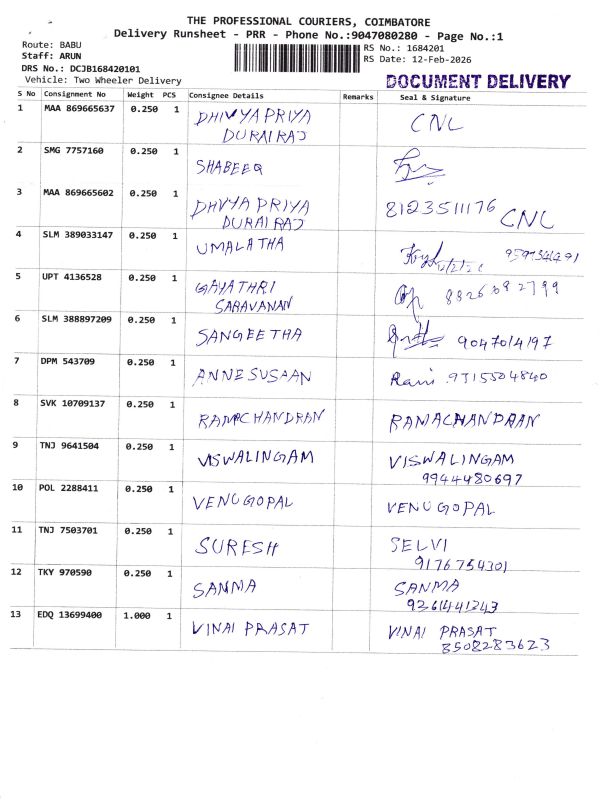 THE PROFESSIONAL COURIERS, COIMBATORE
Delivery Runsheet - PRR - Phone No.:9047080280 - Page No.:1
Route: BABU
Staff: ARUN
DRS No.: DCJB168420101
Vehicle: Two Wheeler Delivery
RS No.: 1684201
RS Date: 12-Feb-2026
DOCUMENT DELIVERY
S No Consignment No Weight PCS Consignee Details Remarks Seal & Signature
1 MAA 869665637 0.250 1 DHIVYAPRIYA CNL
DURAIRAJ
2 SMG 7757160 0.250 1 SHABEEQ
3 MAA 869665602 0.250 1 DHVYA PRIYA 8123511176 CNL
DURAIRAJ
4 SLM 389033147 0.250 1 UMALATHA
5 UPT 4136528 0.250 1 GAYATHRI
SARAVANAN
6 SLM 388897209 0.250 1 SANGEETHA 9047014197
7 DPM 543709 0.250 1 ANNESUSAAN Rani 9315504840
8 SVK 10709137 0.250 1 RAMACHANDRAN RAMACHANDRAN
9 TNJ 9641504 0.250 1 VISWALINGAM VISWALINGAM
9944480697
10 POL 2288411 0.250 1 VENUGOPAL VENUGOPAL
11 TNJ 7503701 0.250 1 SURESH SELVI
9176754301
12 TKY 970590 0.250 1 SANMA SANMA
9261441243
13 EDQ 13699400 1.000 1 VINAI PRASAT VINAI PRASAT
8508283623